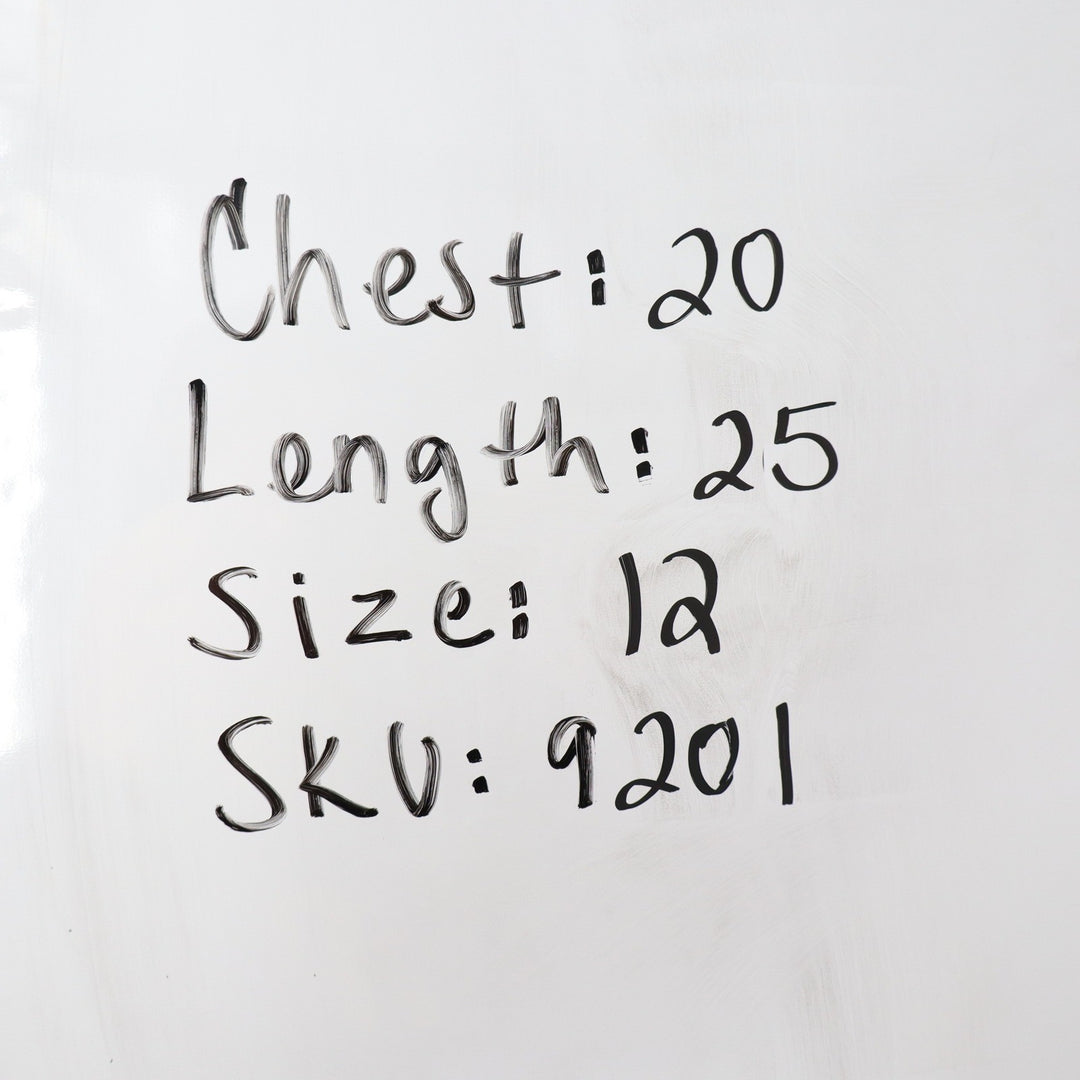 Chest: 20
Length: 25
Size: 12
SKU: 9201